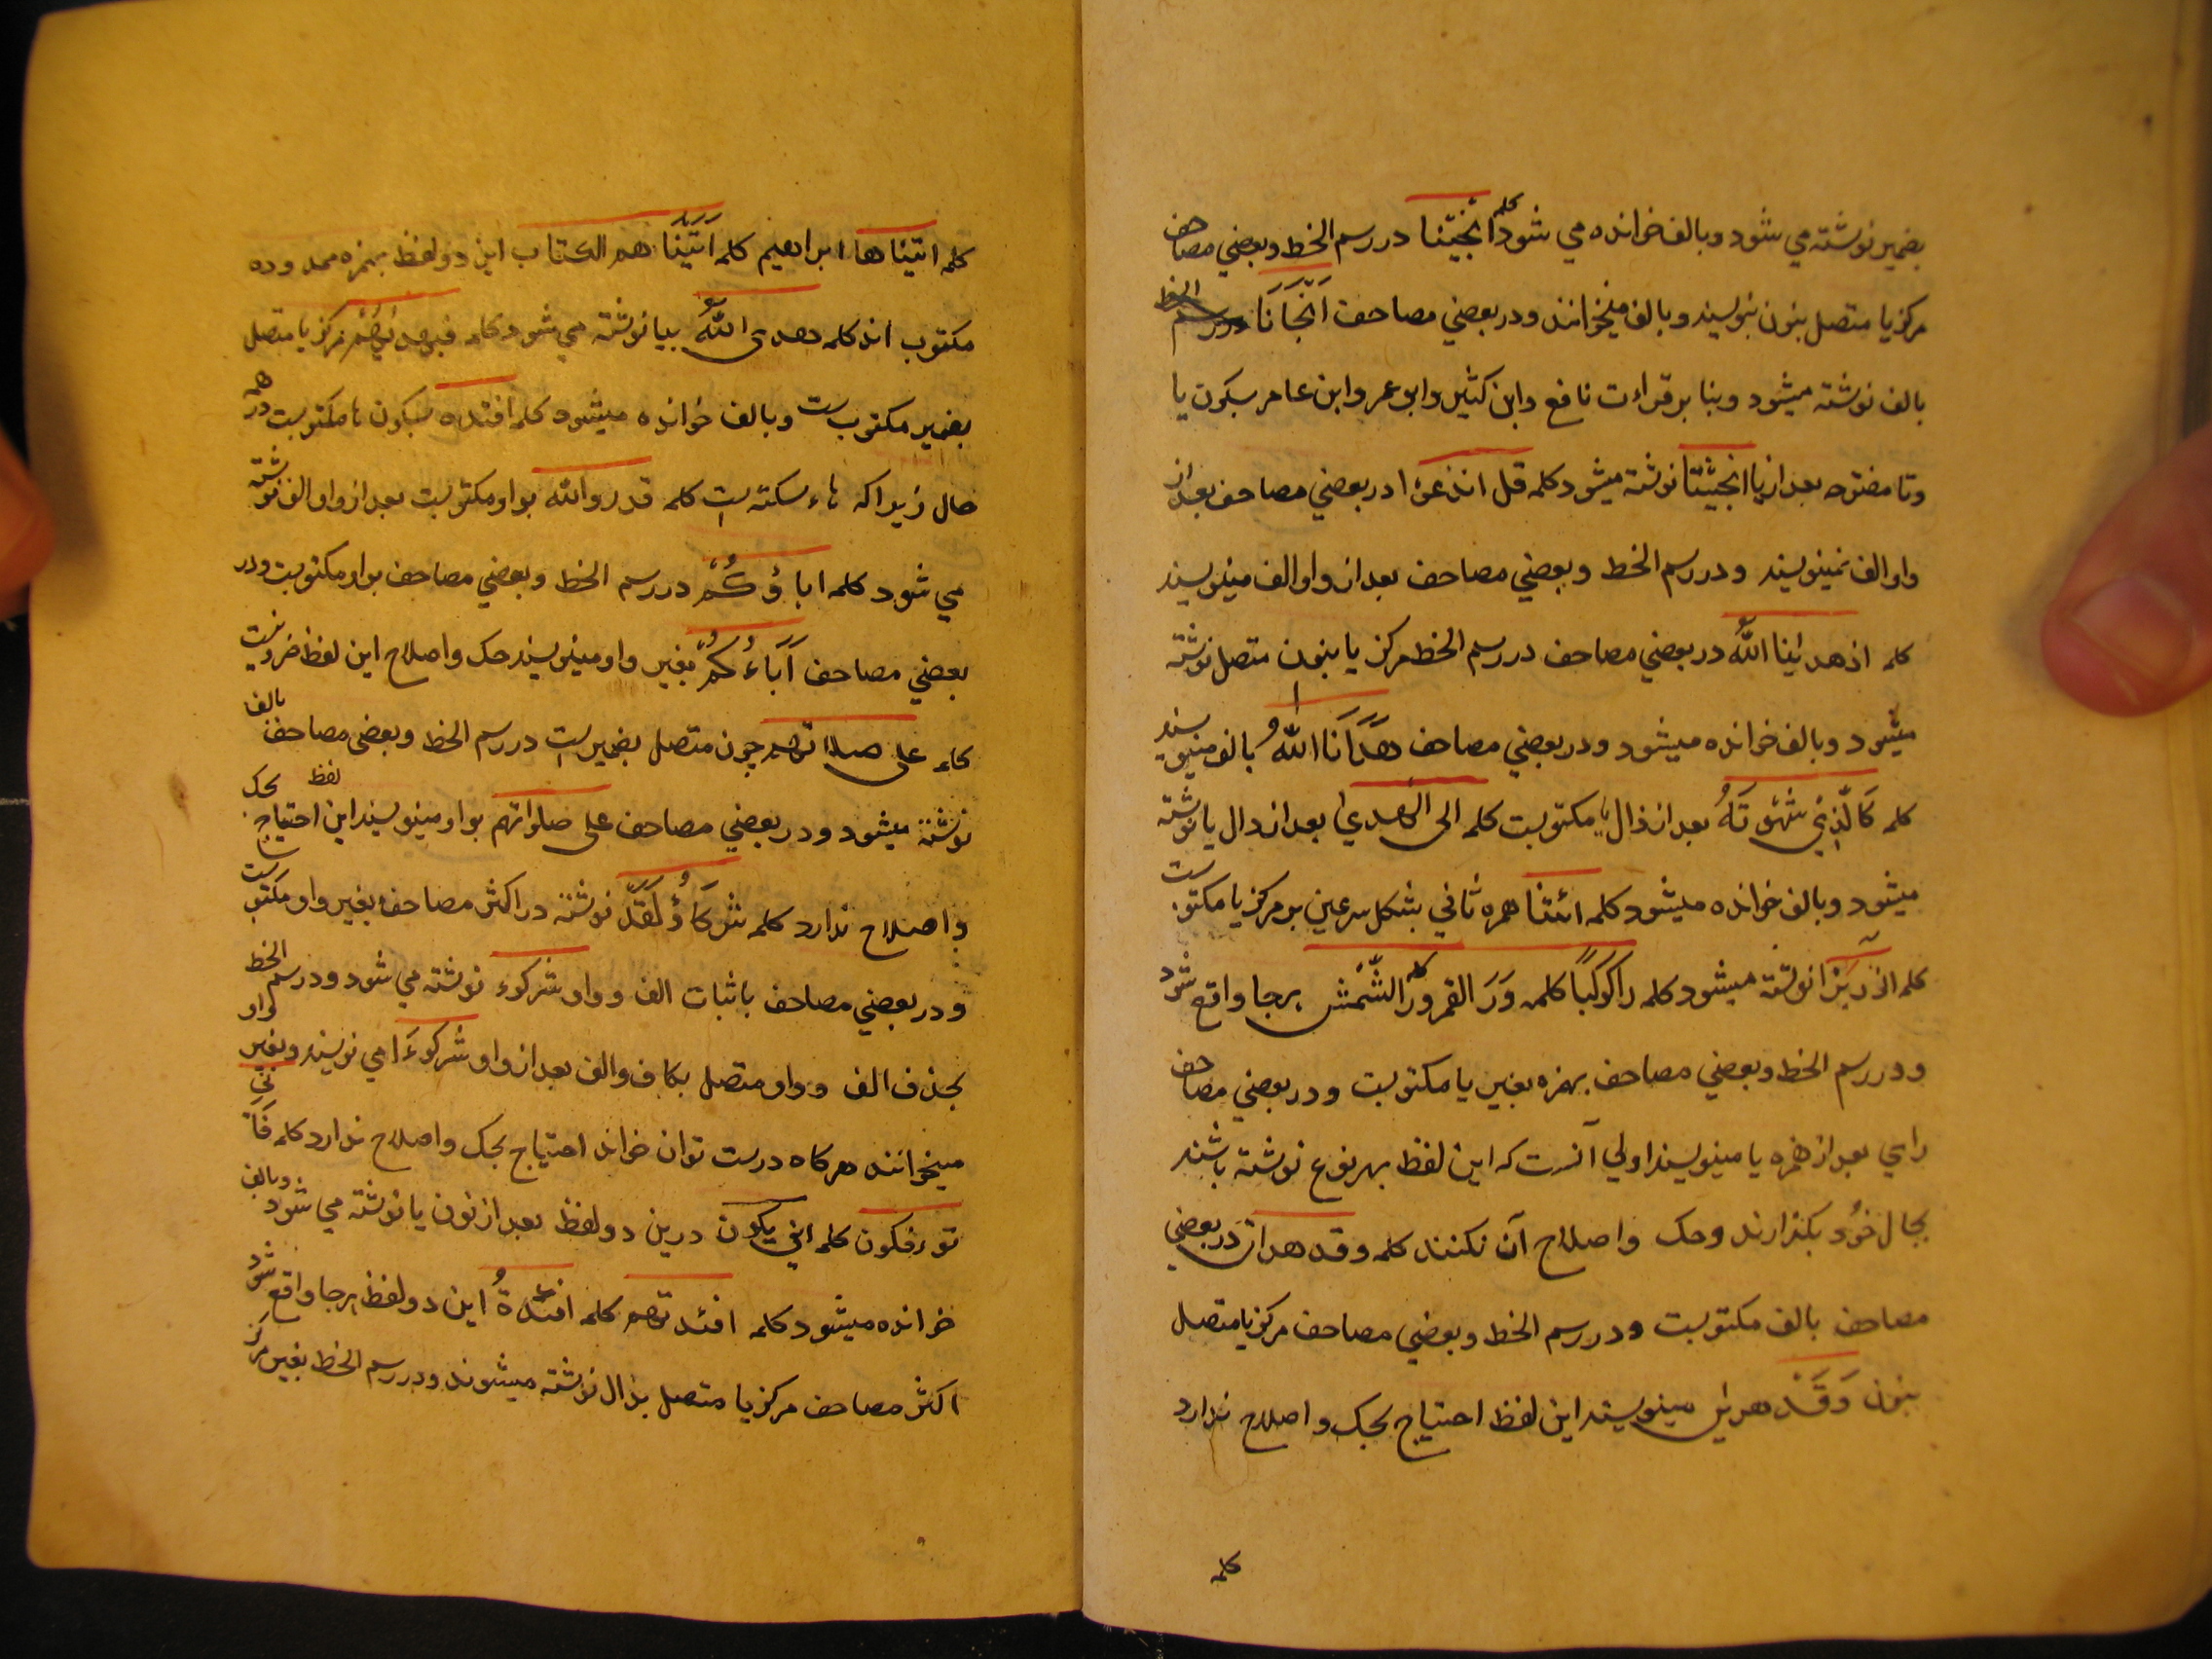 بضمیر نوشته می شود و بالف خوانده می شود کلمه انجیتنا در رسم الخط و بعضی مصاحف
مرکز یا متصل بنون بنویسند و بالف میخوانند و در بعضی مصاحف انجانا در رسم الخط
بالف نوشته میشود و بنا بر قراءت نافع و ابن کثیر و ابو عمر و ابن عامر بسکون یا
و تا مفتوحه بعد از یا انجیتنا نوشته میشود کلمه قل اندعوا در بعضی مصاحف بعد از
واو الف نمینویسند و در رسم الخط و بعضی مصاحف بعد از واو الف مینویسند
کلمه اذ هدینا الله در بعضی مصاحف در رسم الخط مرکز یا بنون متصل نوشته
میشود و بالف خوانده میشود و در بعضی مصاحف هدانا الله بالف مینویسند
کلمه کالذی بعد از ذال یا مکتوبست کلمه الی الهدی بعد از دال یا نوشته
میشود و بالف خوانده میشود کلمه ائتنا همزه ثانی بشکل سر عین بر مرکز یا مکتوبست
کلمه ازر بزا نوشته میشود کلمه را کوکبا کلمه ور القمر کلمه ور الشمس هرجا واقع شود
و در رسم الخط و بعضی مصاحف بهمزه بغیر یا مکتوبست و در بعضی مصاحف
رای بعد از همزه یا مینویسند اولی آنست که این لفظ بهر نوع نوشته باشند
بحال خود بگذارند و حک و اصلاح آن نکنند کلمه وقد هدان در بعضی
مصاحف بالف مکتوبست و در رسم الخط و بعضی مصاحف مرکز یا متصل
بنون وقد هدین مینویسند این لفظ احتیاج بحک و اصلاح ندارد
کلمه
کلمه اتیناها ابراهیم کلمه اتینا هم الکتاب این دو لفظ بهمزه ممدوده
مکتوب اند کلمه هدی الله بیا نوشته می شود کلمه فبهدیهم مرکز یا متصل
بضمیر مکتوب ست و بالف خوانده میشود کلمه اقتده بسکون ها مکتوبست در همه
حال زیرا که هاء سکته است کلمه قدروا الله بواو مکتوبست بعد از واو الف نوشته
می شود کلمه اباؤکم در رسم الخط و بعضی مصاحف بواو مکتوبست و در
بعضی مصاحف آباءکم بغیر واو مینویسند حک و اصلاح این لفظ ضرور نیست
کلمه علی صلاتهم چون متصل بضمیر است در رسم الخط و بعضی مصاحف بالف
نوشته میشود و در بعضی مصاحف علی صلواتهم بواو مینویسند این لفظ احتیاج بحک
و اصلاح ندارد کلمه شرکاؤ لقد نوشته در اکثر مصاحف بغیر واو مکتوبست
و در بعضی مصاحف باثبات الف و واو شرکوء نوشته می شود و در رسم الخط
بحذف الف و واو متصل بکاف و الف بعد از واو شرکوءا می نویسند و بغیر واو
میخوانند هرکاه درست توان خواند احتیاج بحک و اصلاح ندارد کلمه فانی
توءفکون کلمه انی یکون درین دو لفظ بعد از نون یا نوشته می شود و بالف
خوانده میشود کلمه افئدتهم کلمه افئدة این دو لفظ هرجا واقع شود
اکثر مصاحف مرکز یا متصل بدال نوشته میشوند و در رسم الخط بغیر مرکز